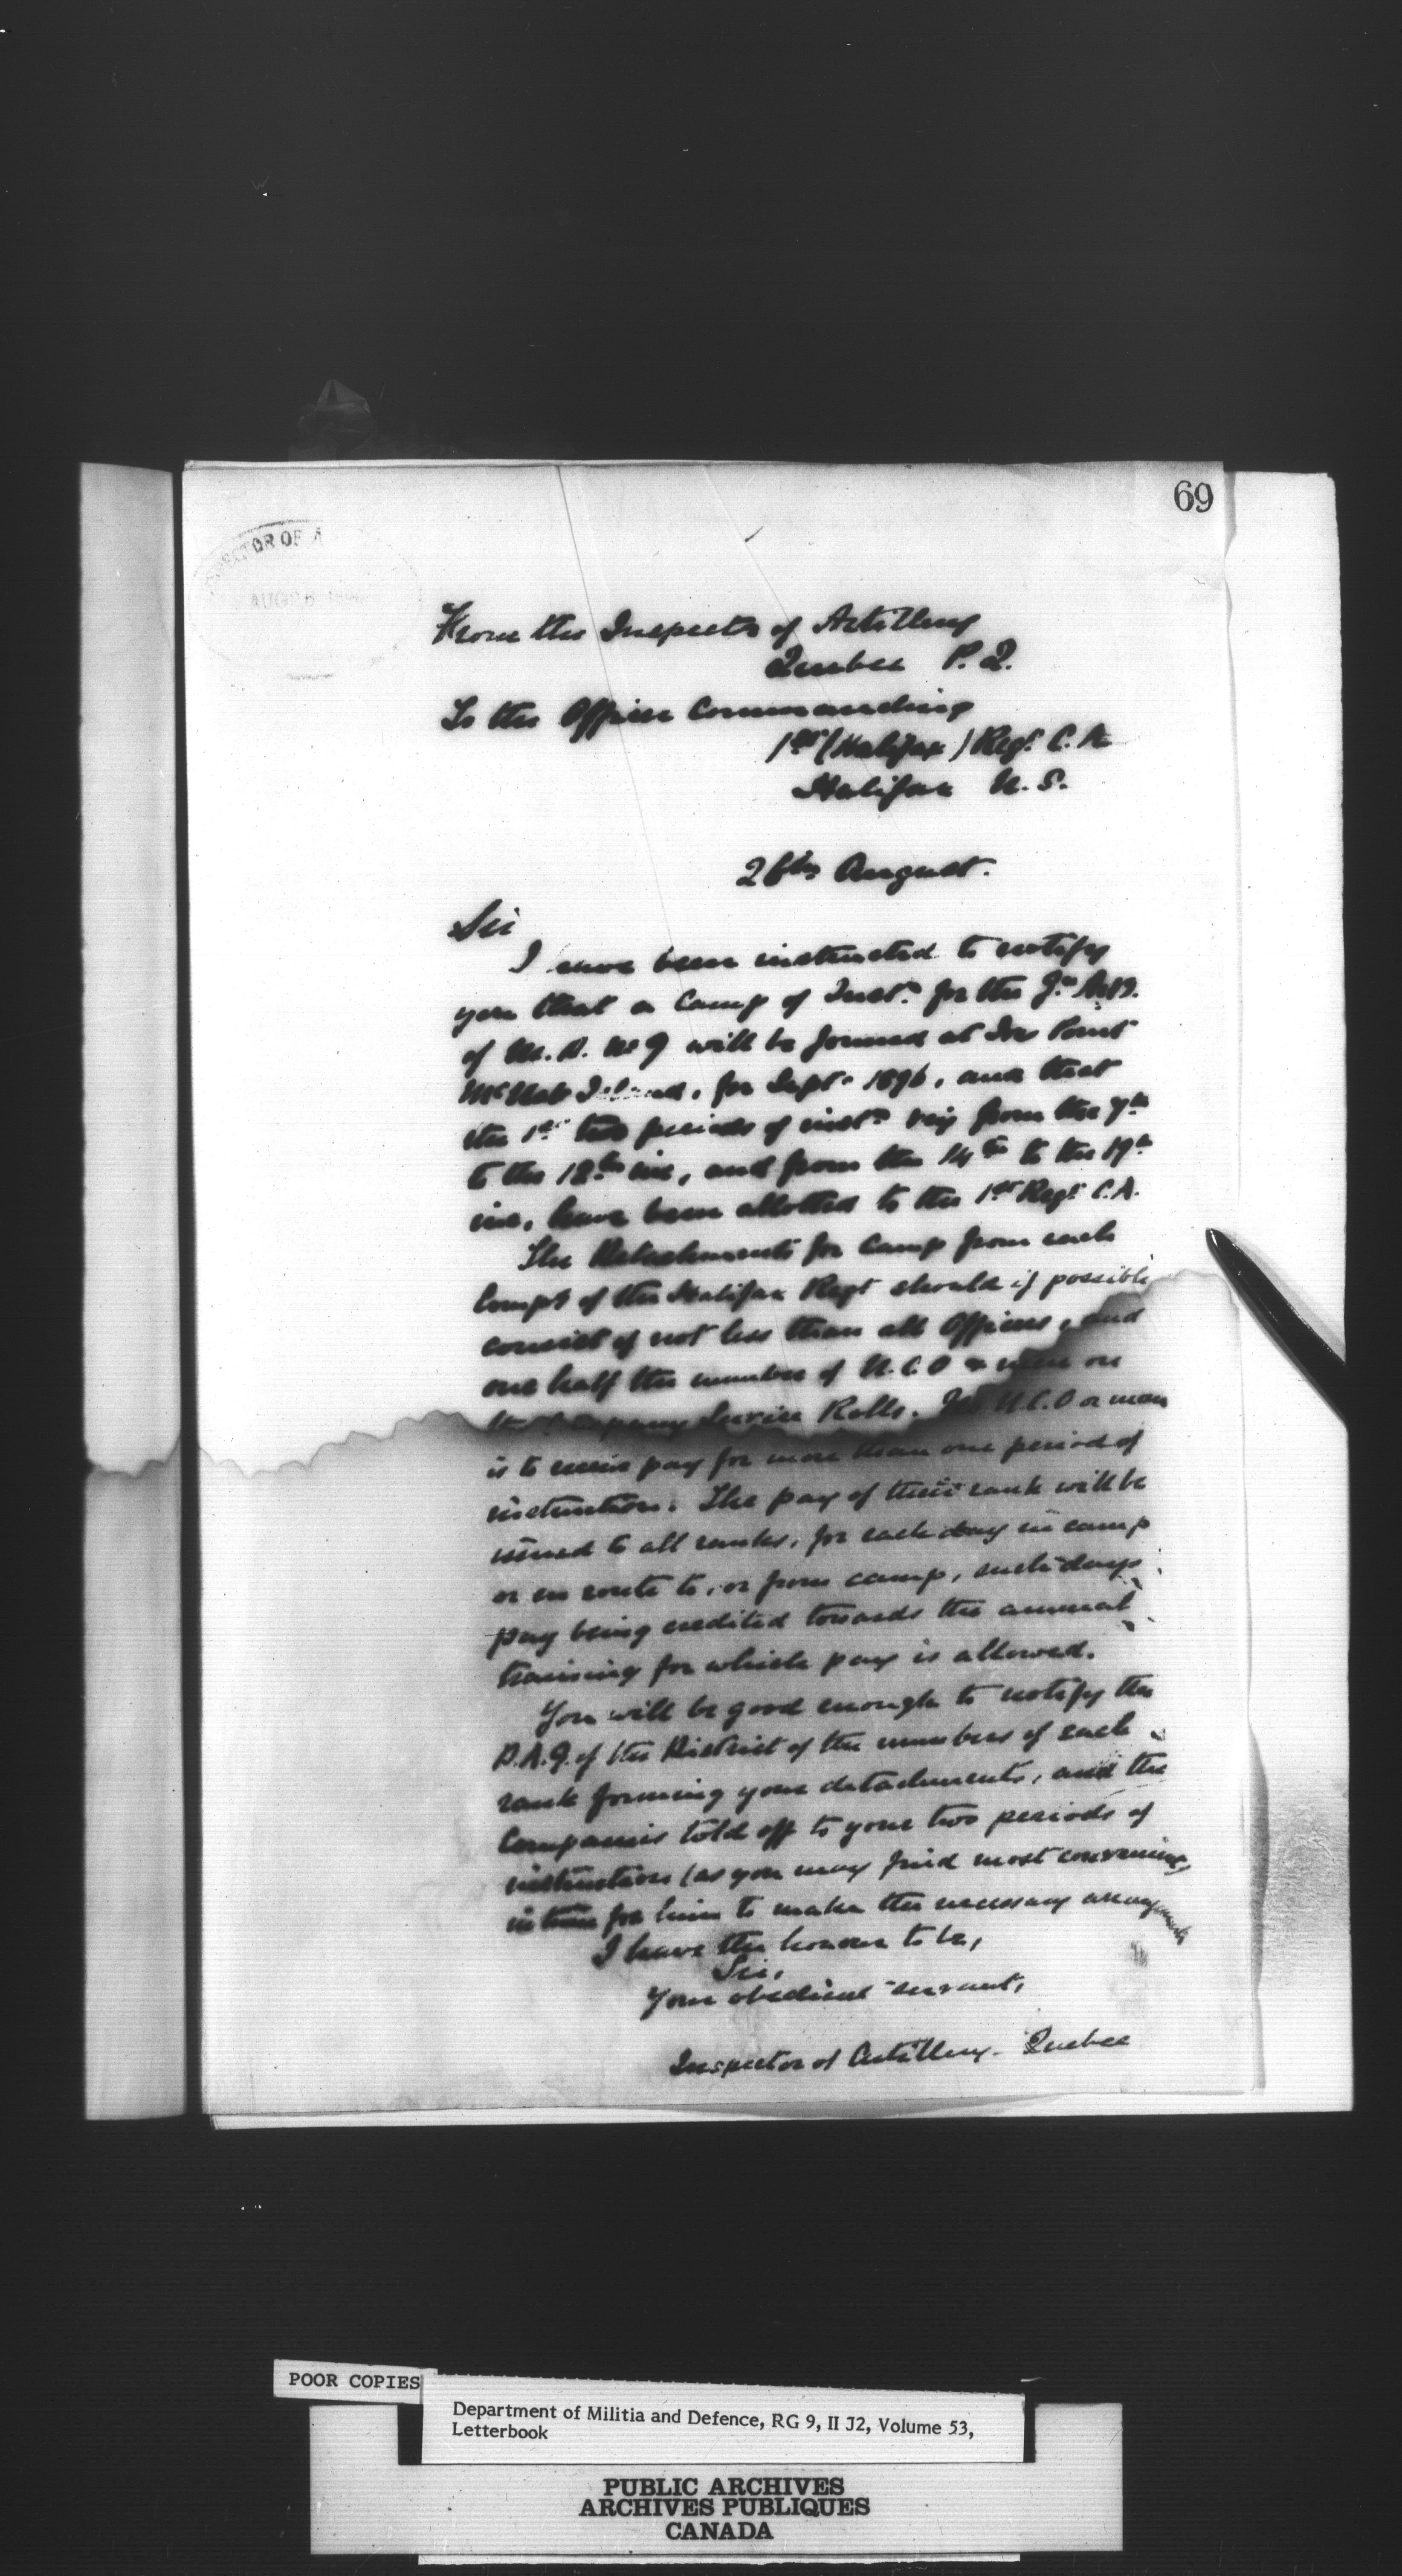 69
OR OF A
AUG 26 1896
From the Inspector of Artillery
Quebec P. Q.
To the Officer Commanding
1st (Halifax) Regt C. A.
Halifax N. S.
26th August.
Sir
I have been instructed to notify
you that a Camp of Inst.n for the Gn Arty.
of M. D. No 9 will be formed at Ives Point
McNab Island, for Sept. 1896, and that
the 1st two periods of instn viz from the 7th
to the 12th inc, and from the 14th to the 19th
inc, have been allotted to the 1st Regt C.A.
The Detachments for Camp from each
Compy of the Halifax Regt should if possible
consist of not less than all Officers, and
one half the number of N.C.O & men on
the Company Service Rolls. No N.C.O or man
is to receive pay for more than one period of
instruction. The pay of their rank will be
issued to all ranks, for each day in camp
or en route to, or from camp, such days
pay being credited towards the annual
training for which pay is allowed.
You will be good enough to notify the
D.A.G. of the District of the numbers of each
rank forming your detachments, and the
Companies told off to your two periods of
instruction (as you may find most convenient)
in time for him to make the necessary arrangements
I have the honour to be,
Sir,
Your obedient servant,
Inspector of Artillery. Quebec
POOR COPIES
Department of Militia and Defence, RG 9, II J2, Volume 53,
Letterbook
PUBLIC ARCHIVES
ARCHIVES PUBLIQUES
CANADA